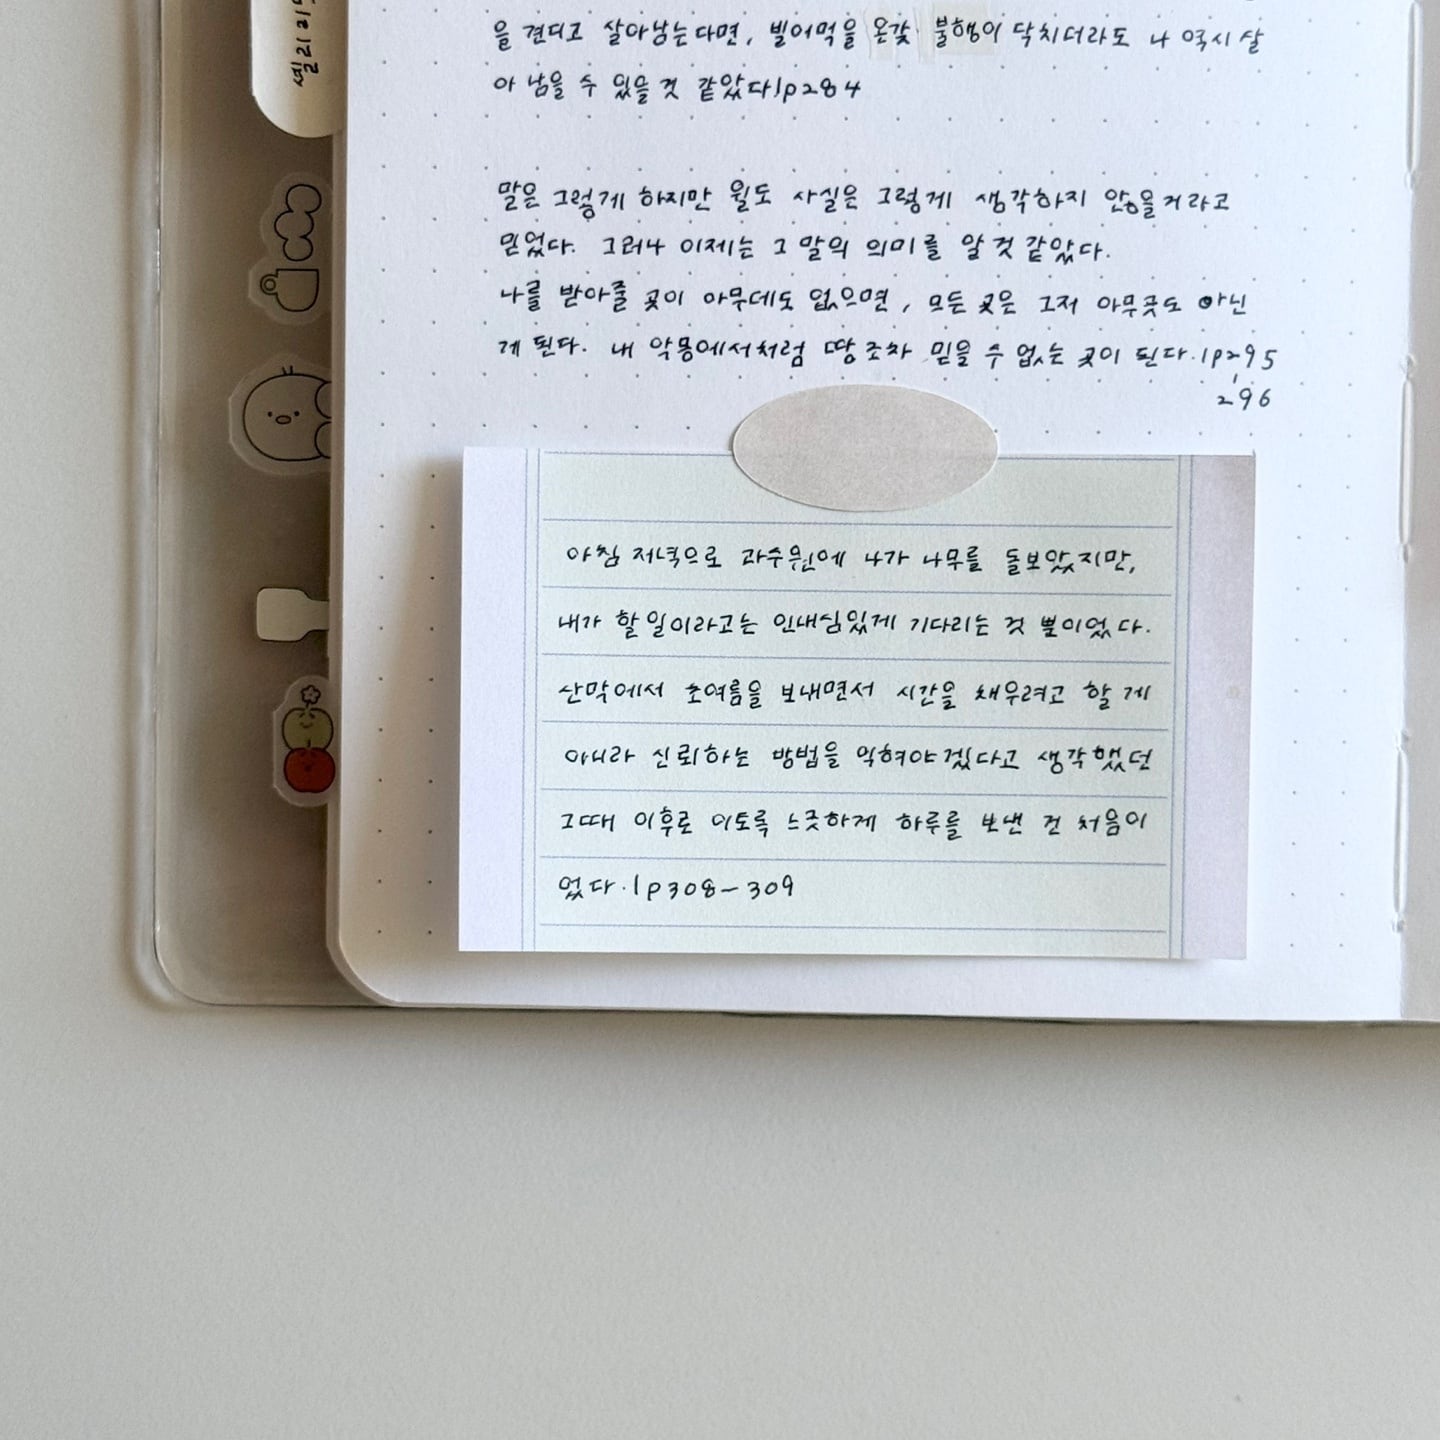 을 견디고 살아남는다면, 빌어먹을 온갖 불행이 닥치더라도 나 역시 살
아 남을 수 있을 것 같았다|p284
말은 그렇게 하지만 윌도 사실은 그렇게 생각하지 않을거라고
믿었다. 그러나 이제는 그 말의 의미를 알 것 같았다.
나를 받아줄 곳이 아무데도 없으면, 모든 곳은 그저 아무곳도 아닌
게 된다. 내 악몽에서처럼 땅조차 믿을 수 없는 곳이 된다.|p295
, 296
아침 저녁으로 과수원에 나가 나무를 돌보았지만,
내가 할 일이라고는 인내심있게 기다리는 것 뿐이었다.
산막에서 초여름을 보내면서 시간을 채우려고 할 게
아니라 신뢰하는 방법을 익혀야겠다고 생각했던
그때 이후로 이토록 느긋하게 하루를 보낸 건 처음이
었다.|p308-309